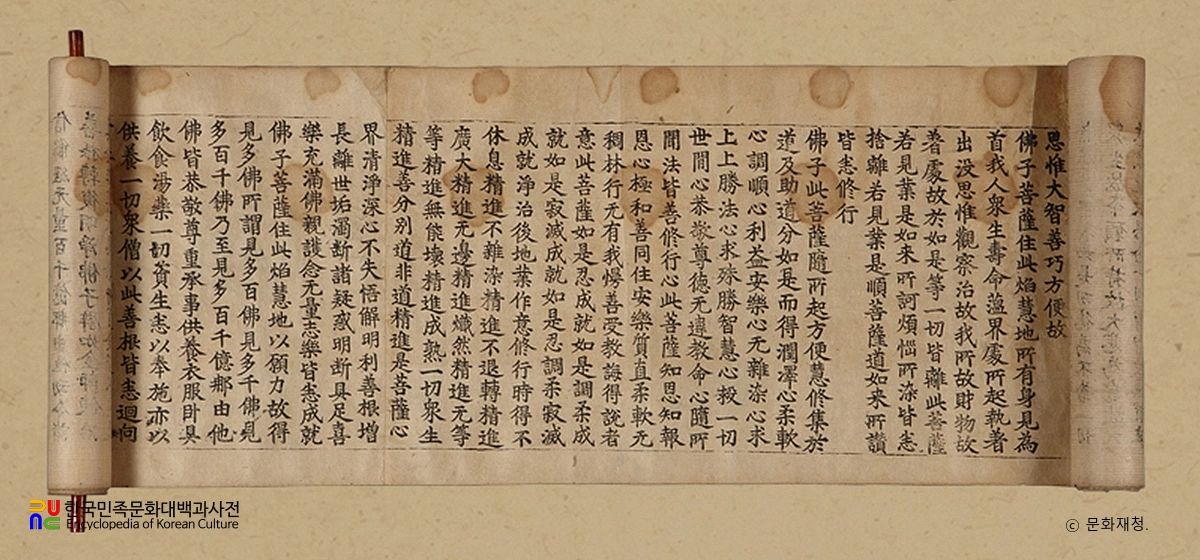 思惟大智善巧方便故
佛子菩薩住此焰慧地所有身見為
首我人衆生壽命薀界處所起執著
出没思惟觀察治故我所故財物故
著處故於如是等一切皆離此菩薩
若見業是如来所訶煩惱所染皆悉
捨離若見業是順菩薩道如来所讚
皆悉修行
佛子此菩薩隨所起方便慧修集於
道及助道分如是而得潤澤心柔軟
心調順心利益安樂心无雜染心求
上上勝法心求殊勝智慧心救一切
世間心恭敬尊德无違教命心隨所
聞法皆善修行心此菩薩知恩知報
恩心極和善同住安樂質直柔軟无
稠林行无有我慢善受教誨得說者
意此菩薩如是忍成就如是調柔成
就如是寂滅成就如是忍調柔寂滅
成就淨治後地業作意修行時得不
休息精進不雜染精進不退轉精進
廣大精進无邊精進熾然精進无等
等精進無能壊精進成熟一切衆生
精進善分别道非道精進是菩薩心
界清淨深心不失悟解明利善根增
長離世垢濁斷諸疑惑明斷具足喜
樂充滿佛親護念无量志樂皆悉成就
佛子菩薩住此焰慧地以願力故得
見多佛所謂見多百佛見多千佛見
多百千佛乃至見多百千億那由他
佛皆恭敬尊重承事供養衣服卧具
飲食湯藥一切資生悉以奉施亦以
供養一切衆僧以此善根皆悉迴向
한국민족문화대백과사전
Encyclopedia of Korean Culture
ⓒ 문화재청.